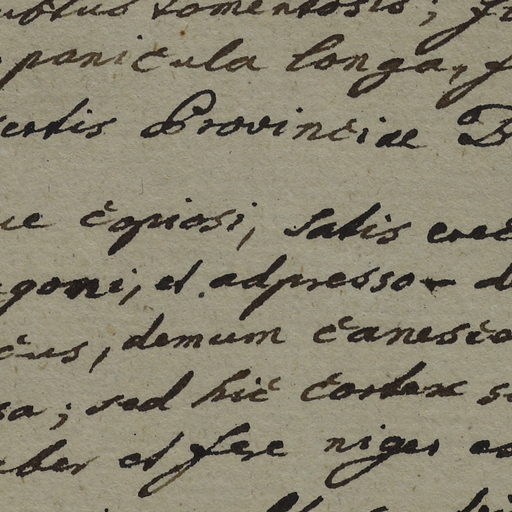 subtus tomentosis;
panicula longa,
certis Provinciae
copiosi, satis erec
goni, et adpresso - d
cus, demum canesce
sa; sed hic cortex s
ber et fere niger e